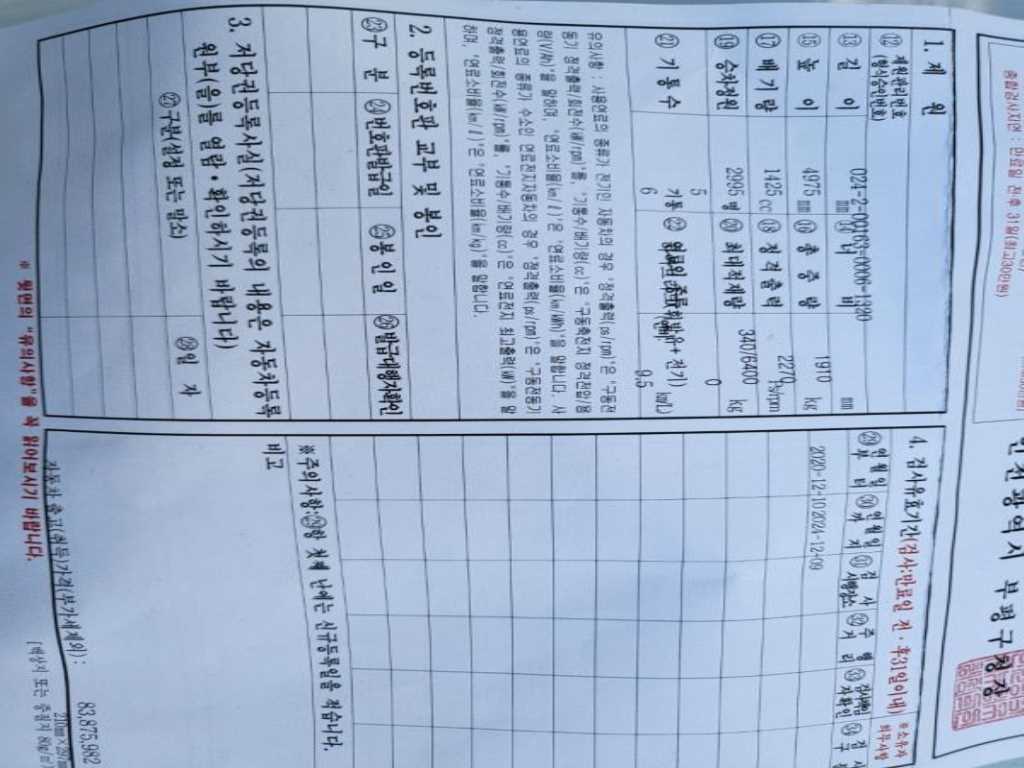 종합검사지연 : 만료일 전후 31일(최고30만원)
인천광역시 부평구청장
1. 제 원
⑫ 제원관리번호
(형식승인번호)
024-2-00163-0006-1320
⑬ 길 이 4975 mm ⑭ 너 비 1910 mm
⑮ 높 이 1425 ⑯ 총 중 량 2270 kg
⑰ 배 기 량 2995 cc ⑱ 정격출력 340/6400 Ps/rpm
⑲ 승차정원 5 명 ⑳ 최대적재량 0 kg
㉑ 기 통 수 6 기통 ㉒ 연료의 종류 + 전기) 9.5 km/L)
유의사항 : 사용연료의 종류가 전기인 자동차의 경우 '정격출력(ps/rpm)'은 '구동전
동기 정격출력/회전수(㎾/rpm)'를, '기통수/배기량(cc)'은 '구동축전지 정격전압/용
량(V/Ah)'을 말하며, '연료소비율(㎞/ℓ)'은 '연료소비율(㎞/㎾h)'을 말합니다. 사
용연료의 종류가 수소인 연료전지자동차의 경우 '정격출력(ps/rpm)'은 '구동전동기
정격출력/회전수(㎾/rpm)'를, '기통수/배기량(cc)'은 '연료전지 최고출력(㎾)'을 말
하며, '연료소비율(㎞/ℓ)'은 '연료소비율(㎞/kg)'을 말합니다.
2. 등록번호판 교부 및 봉인
㉓ 구 분 ㉔ 번호판발급일 ㉕ 봉 인 일 ㉖ 발급대행자확인
3. 저당권등록사실(저당권등록의 내용은 자동차등록
원부(을)를 열람·확인하시기 바랍니다)
㉗ 구분(설정 또는 말소) ㉘ 일 자
※ 뒷면의 "유의사항"을 꼭 읽어보시기 바랍니다.
4. 검사유효기간(검사:만료일 전·후31일이내) ※소유자
의무사항
㉙ 연월일
부 터
㉚ 연월일
까 지
㉛ 검 사
시행장소
㉜ 주 행
거 리
㉝ 검사책임
자확인
㉞ 검 사
구
2020-12-10 2024-12-09
※주의사항:㉙항 첫째 난에는 신규등록일을 적습니다.
비고
자동차 출고(취득)가격(부가세제외) : 83,875,982
210㎜×297㎜
[백상지 또는 중질지 80g/㎡]